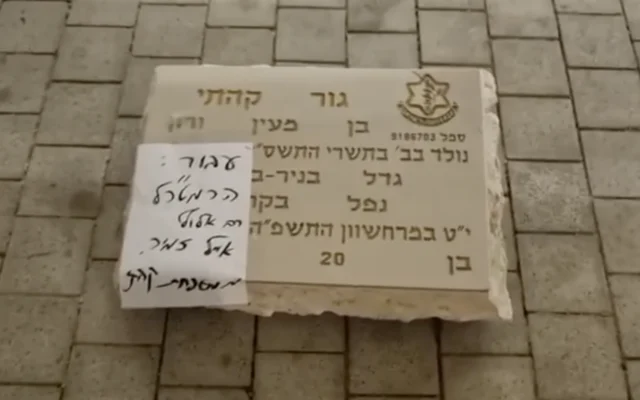 גור קהתי
בן מעין ורון
סמל 9186703
נולד בב' בתשרי התשס"
גדל בניר-ב
נפל בקר
י"ט במרחשוון התשפ"ה
בן 20
עבור:
הרמטכ"ל
רב אלוף
אייל זמיר
ממשפחת קהתי